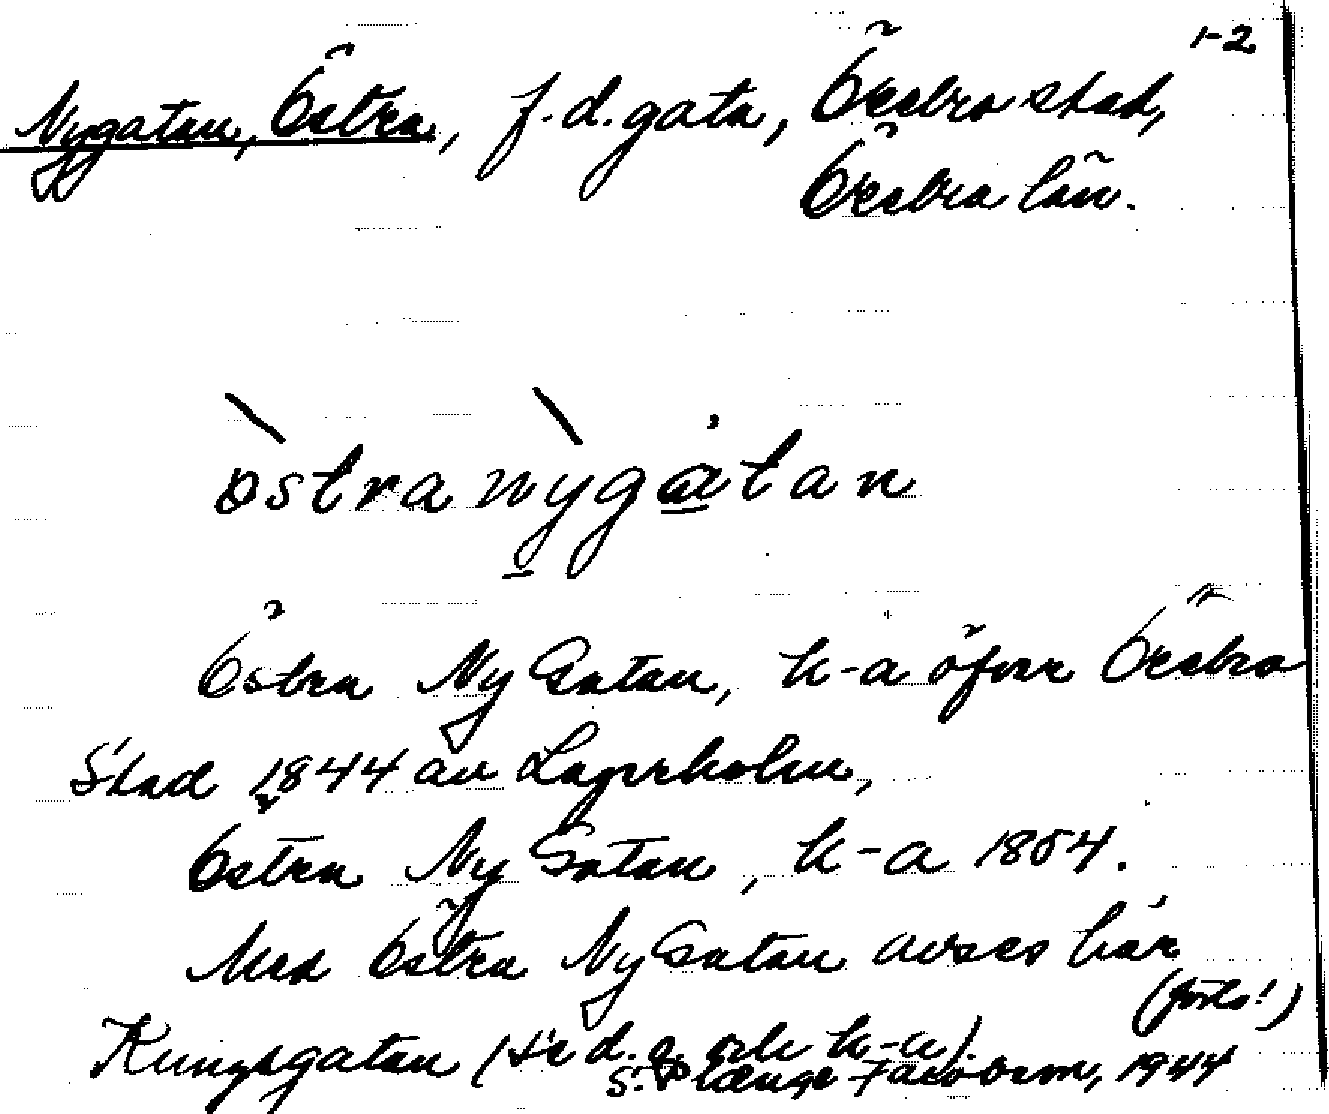 1-2
Nygatan, Östra, f.d. gata, Örebro stad,
Örebro län.
òstra nỳgatan
Östra Ny Gatan, k-a öfver Örebro
Stad 1844 av Lagerholm,
Östra Ny Gatan, k-a 1854.
Med Östra Ny Gatan avses här
(forts!)
Kungsgatan (se d.o. och k-a).
S. Plænge Jacobson, 1944